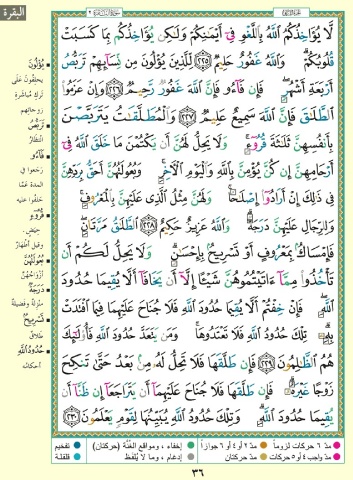 البقرة
لَّا يُؤَاخِذُكُمُ اللَّهُ بِاللَّغْوِ فِي أَيْمَانِكُمْ وَلَٰكِن يُؤَاخِذُكُم بِمَا كَسَبَتْ
قُلُوبُكُمْ وَاللَّهُ غَفُورٌ حَلِيمٌ ٢٢٥ لِّلَّذِينَ يُؤْلُونَ مِن نِّسَائِهِمْ تَرَبُّصُ
أَرْبَعَةِ أَشْهُرٍ فَإِن فَاءُو فَإِنَّ اللَّهَ غَفُورٌ رَّحِيمٌ ٢٢٦ وَإِنْ عَزَمُوا
الطَّلَاقَ فَإِنَّ اللَّهَ سَمِيعٌ عَلِيمٌ ٢٢٧ وَالْمُطَلَّقَاتُ يَتَرَبَّصْنَ
بِأَنفُسِهِنَّ ثَلَاثَةَ قُرُوءٍ وَلَا يَحِلُّ لَهُنَّ أَن يَكْتُمْنَ مَا خَلَقَ اللَّهُ فِي
أَرْحَامِهِنَّ إِن كُنَّ يُؤْمِنَّ بِاللَّهِ وَالْيَوْمِ الْآخِرِ وَبُعُولَتُهُنَّ أَحَقُّ بِرَدِّهِنَّ
فِي ذَٰلِكَ إِنْ أَرَادُوا إِصْلَاحًا وَلَهُنَّ مِثْلُ الَّذِي عَلَيْهِنَّ بِالْمَعْرُوفِ
وَلِلرِّجَالِ عَلَيْهِنَّ دَرَجَةٌ وَاللَّهُ عَزِيزٌ حَكِيمٌ ٢٢٨ الطَّلَاقُ مَرَّتَانِ
فَإِمْسَاكٌ بِمَعْرُوفٍ أَوْ تَسْرِيحٌ بِإِحْسَانٍ وَلَا يَحِلُّ لَكُمْ أَن
تَأْخُذُوا مِمَّا آتَيْتُمُوهُنَّ شَيْئًا إِلَّا أَن يَخَافَا أَلَّا يُقِيمَا حُدُودَ
اللَّهِ فَإِنْ خِفْتُمْ أَلَّا يُقِيمَا حُدُودَ اللَّهِ فَلَا جُنَاحَ عَلَيْهِمَا فِيمَا افْتَدَتْ
بِهِ تِلْكَ حُدُودُ اللَّهِ فَلَا تَعْتَدُوهَا وَمَن يَتَعَدَّ حُدُودَ اللَّهِ فَأُولَٰئِكَ
هُمُ الظَّالِمُونَ ٢٢٩ فَإِن طَلَّقَهَا فَلَا تَحِلُّ لَهُ مِن بَعْدُ حَتَّىٰ تَنكِحَ
زَوْجًا غَيْرَهُ فَإِن طَلَّقَهَا فَلَا جُنَاحَ عَلَيْهِمَا أَن يَتَرَاجَعَا إِن ظَنَّا أَن
يُقِيمَا حُدُودَ اللَّهِ وَتِلْكَ حُدُودُ اللَّهِ يُبَيِّنُهَا لِقَوْمٍ يَعْلَمُونَ ٢٣٠
يُؤْلُونَ
يحلفون على
ترك مُباشرة
زوجاتهم
تَرَبُّصُ
انتظار
فَاءُو
رجعوا في
المدة عمّا
حلفوا عليه
قُرُوءٍ
حيض
وقيل أطهار
بُعُولَتُهُنَّ
أزواجهنّ
دَرَجَةٌ
منزلة وفضيلة
تَسْرِيحٌ
طلاق
حُدُودُ اللَّهِ
أحكامه
مدّ ٦ حركات لزوماً
مدّ ٢ أو ٤ أو ٦ جوازاً
إخفاء، ومواقع الغُنَّة (حركتان)
تفخيم
مدّ واجب ٤ أو ٥ حركات
مدّ حركتان
إدغام، وما لا يُلفظ
قلقلة
٣٦